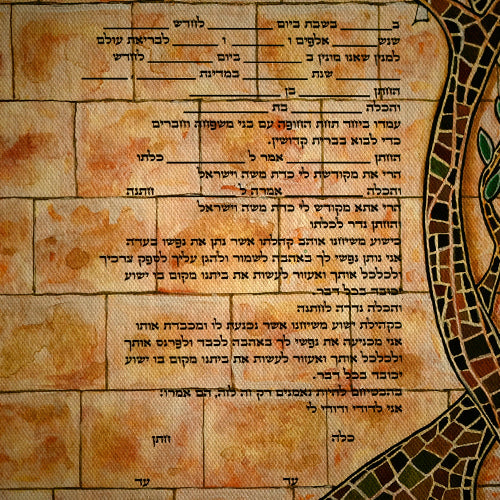 ב______ בשבת ביום ______ לחדש ______
שנש______ אלפים ו ______ ו ______ לבריאת עולם
למנין שאנו מונין ב ______ ביום ______ לחדש
______ שנת ______ במדינת ______ , ______
החתן ______ בן ______
והכלה ______ בת ______
עמדו ביחד תחת החופה עם בני משפחה וחברים
כדי לבוא בברית קדושין.
החתן ______ אמר ל ______ כלתו
הרי את מקודשת לי כדת משה וישראל
והכלה ______ אמרת ל ______ חתנה
הרי אתא מקודש לי כדת משה וישראל
החתן נדר לכלתו
כישוע משיחנו אוהב קהלתו אשר נתן את נפשו בעדה
אני נותן נפשי לך באהבה לשמור ולהגן עליך לספק צרכיך
ולכלכל אותך ואעזור לעשות את ביתנו מקום בו ישוע
יכובד בכל דבר.
והכלה נדרה לחתנה
כקהילת ישוע משיחנו אשר נכנעת לו ומכבדת אותו
אני מכניעה את נפשי לך באהבה לכבד ולפרנס אותך
ולכלכל אותך ואעזור לעשות את ביתנו מקום בו ישוע
יכובד בכל דבר.
בהבטיחם להיות נאמנים רק זה לזה, הם אמרו:
אני לדודי ודודי לי
כלה חתן
עד עד